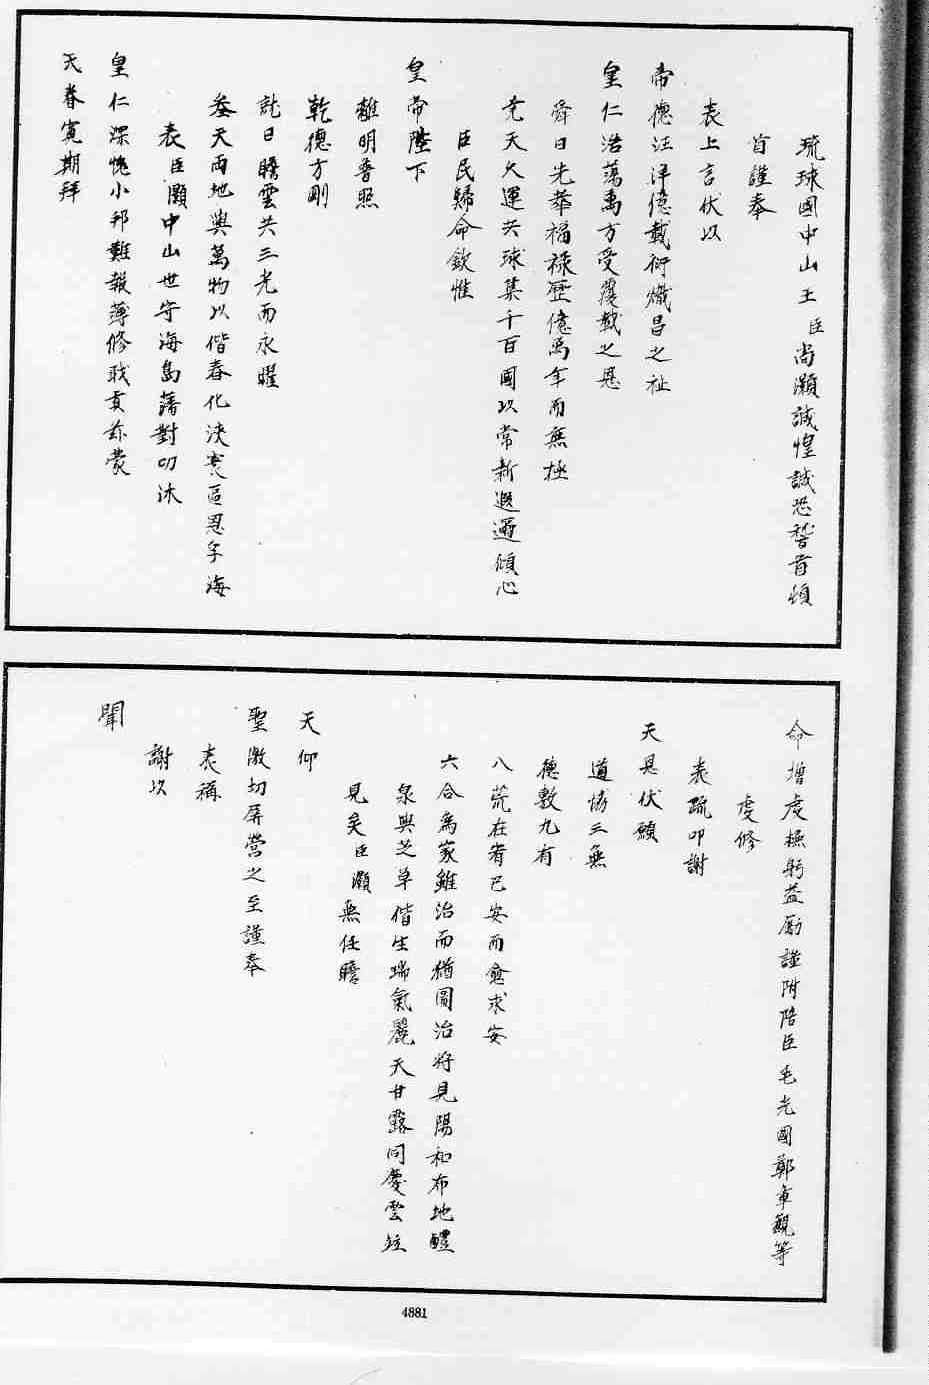 琉球國中山王臣尚灝誠惶誠恐稽首頓
首謹奉
表上言伏以
帝德汪洋億載衍熾昌之祉
皇仁浩蕩萬方受覆載之恩
舜日光華福祿歷億萬年而無極
堯天久運共球集千百國以常新遐邇傾心
臣民歸命欽惟
皇帝陛下
離明普照
乾德方剛
就日瞻雲共三光而永曜
叄天兩地與萬物以偕春化浹寰區恩孚海
表臣灝中山世守海島藩封叨沐
皇仁深愧小邦難報薄修職貢荐蒙
天眷寬期拜
命增虔撫躬益勵謹附陪臣毛光國鄭章觀等
虔修
表疏叩謝
天恩伏願
道協三無
德敷九有
八荒在宥已安而愈求安
六合為家雖治而猶圖治將見陽和布地醴
泉與芝草偕生瑞氣麗天甘露同慶雲竝
見矣臣灝無任瞻
天仰
聖激切屏營之至謹奉
表稱
謝以
聞
4881